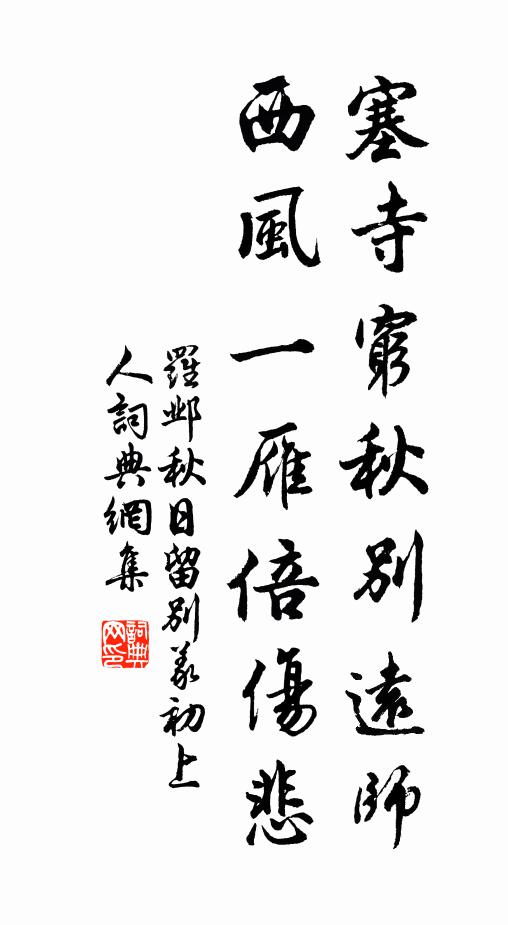 塞寺窮秋別遠師
西風一雁倍傷悲
羅鄴秋日留別義初上
人詞典網集
詞典
网印